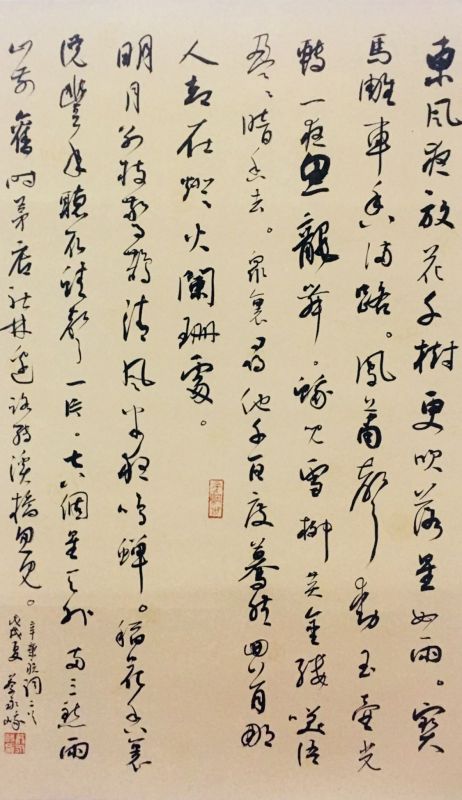 東風夜放花千樹更吹落星如雨。寶
馬雕車香滿路。鳳簫聲動玉壺光
轉一夜魚龍舞。蛾兒雪柳黃金縷笑語
盈盈暗香去。衆裏尋他千百度驀然回首那
人卻在燈火闌珊處。
明月別枝驚鵲清風半夜鳴蟬。稻花香裏
說豐年聽取蛙聲一片。七八個星天外兩三點雨
山前舊時茅店社林邊路轉溪橋忽見。
辛棄疾詞二首
戊戌夏